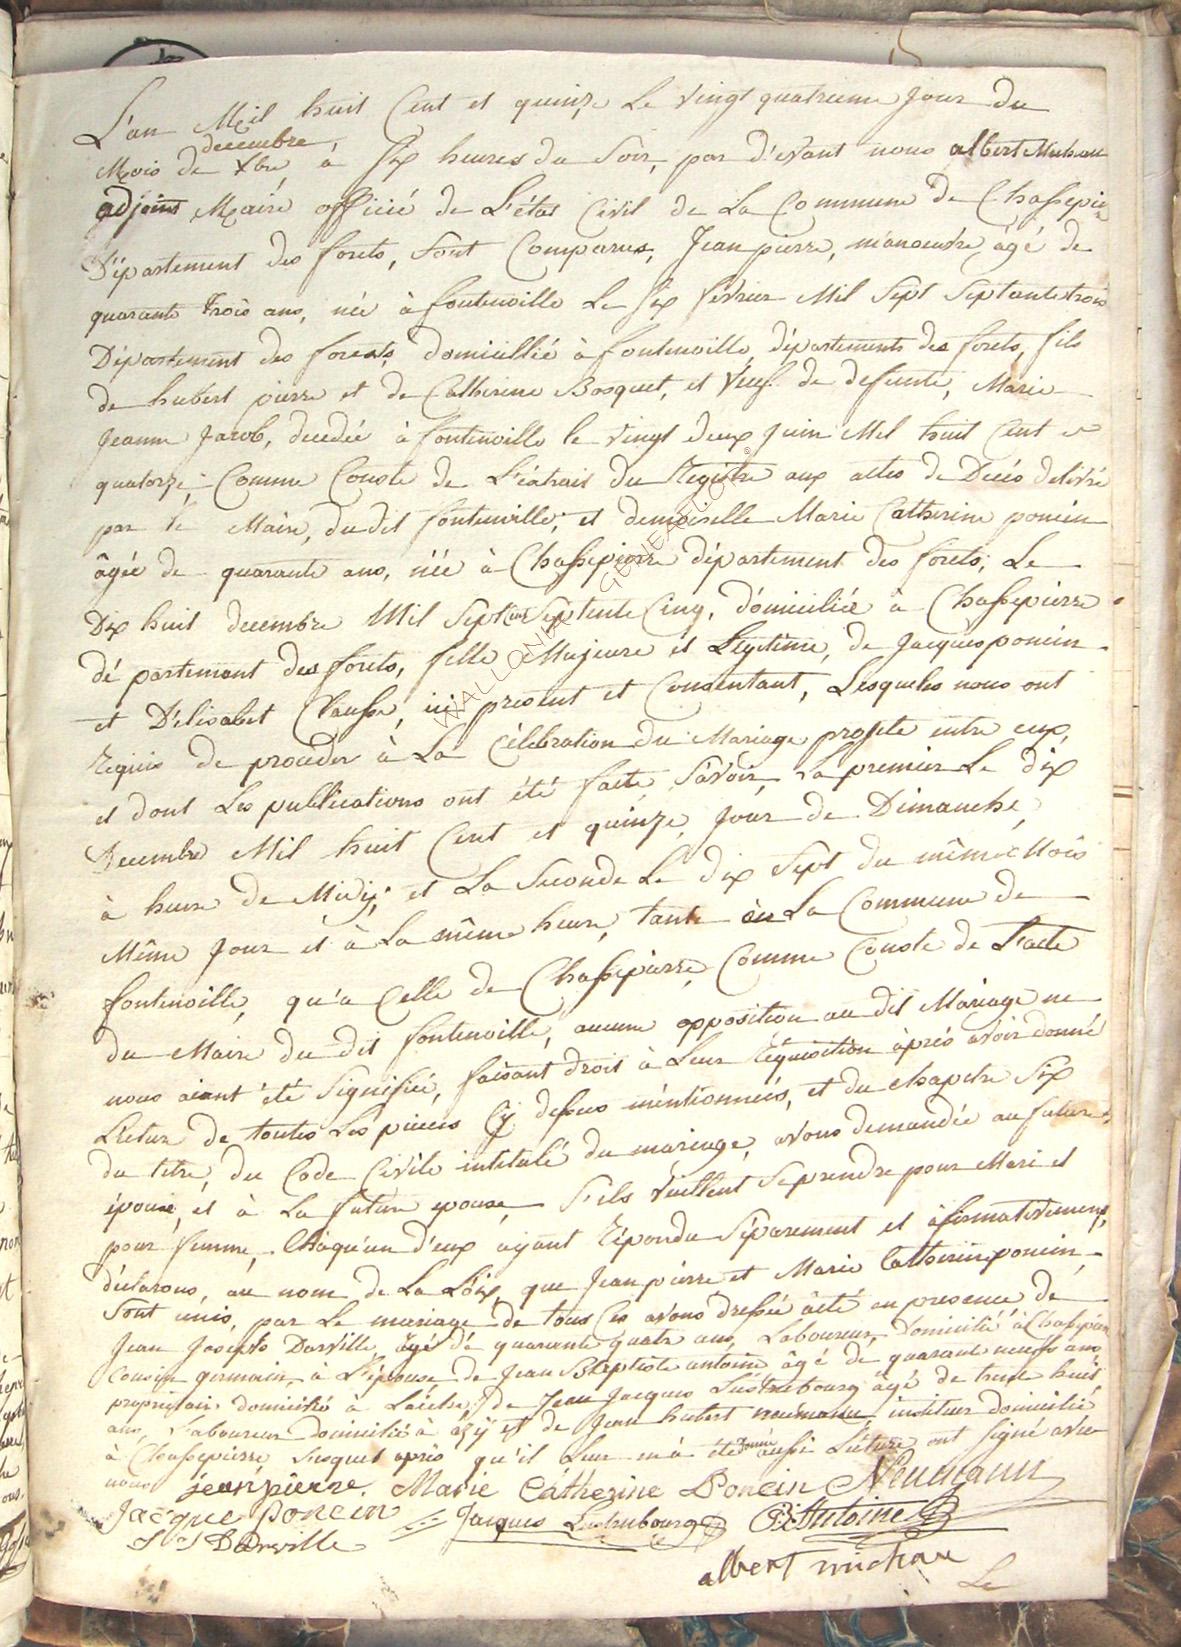 L'an Mil huit Cent et quinze Le vingt quatrieme Jour du
decembre
Mois de Xbre à Six heures du Soir, par d'evant nous albert Michau
adjoint Maire officié de L'état Civil de La Commune de Chassepierre
Département des forets, Sont Comparus, Jean pierre, manoeuvre âgé de
quarante trois ans, née à fontenoille Le six fevrier Mil Sept Septante trois
Département des forests, domicillié à fontenoille, départements des forets, fils
de hubert pierre et de Catherine Bosquet, et veuf de defunte, Marie
Jeanne Jacob, decedée à fontenoille le vingt deux Juin Mil huit Cent et
quatorze, Comme Conste de L'extrait du Registre aux actes de Decés delivré
par le Maire, du dit fontenoille; et demoiselle Marie Catherine poncin
âgée de quarante ans, née à Chassepierre département des forets, Le
Dix huit decembre Mil Sept Cent Septente Cinq, domiciliée à Chassepierre
département des forets, fille Majeure et Legitime, de Jacques poncin
et D'elisabet Clausse, ici present et Consentant, Lesquels nous ont
requis de proceder à La Célébration du Mariage projeté entre eux,
et dont Les publications ont été faite, Savoir, La premier Le dix
Decembre Mil huit Cent et quinze, Jour de Dimanche,
à heure de Midy; et La Seconde Le dix Sept du même Mois
Même Jour et à La même heure, tante à La Commune de
fontenoille, qu'a Celle de Chassepierre, Comme Conste de L'acte
du Maire du dit fontenoille, aucune opposition au dit Mariage ne
nous aiant été Signifiée, faisant droit à Leur Réquisition après avoir donné
Lectur de toutes Les pieces Cy dessus mentionnées, et du chapitre Six
du titre, du Code Civile intitulé du mariage, avons demandée au futur
épouse, et à La future epouse, S'ils veuillent Se prendre pour Mari et
pour femme, Chaqu'un d'eux ayant Répondu Séparement et afirmativement,
déclarons, au nom de La Loix, que Jean pierre et Marie Catherine poncin,
Sont unis, par Le mariage de tous Ces avons dressée acté en presence de
Jean Joseph Darville, âgé de quarante quatre ans, Laboureur, Domicilié à Chassepierre
Cousin germain à L'épouse, de Jean Baptiste antoine âgé de quarante neuf ans
propriétair domicilié à Laiche, de Jean Jacques Lustrebourg âgé de trente huit
ans, Laboureur domicilié à azÿ et de Jean hubert neumann, instituer domicilié
à Chassepierre Lesquet après qu'il Leur en à été donné aussi Lecture ont Signé avec
nous jean pierre. Marie Cathérine Poncin Neumann
Jacque poncin Jacques Lustrebourg Antoine
Darville
albert michau
Le
WALLONIA GENEALOG